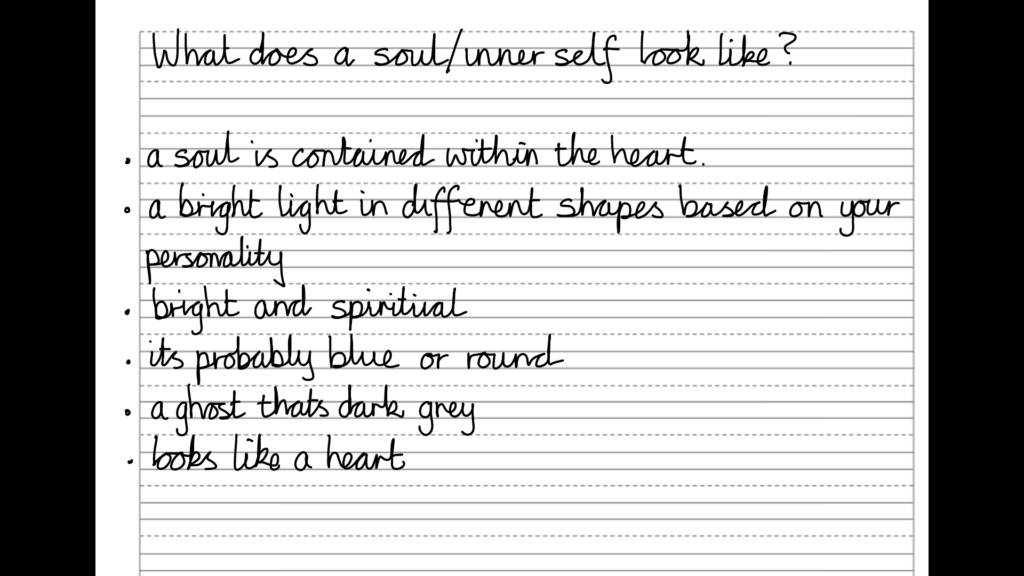 What does a soul/inner self look like?
• a soul is contained within the heart.
• a bright light in different shapes based on your
personality
• bright and spiritual
• its probably blue or round
• a ghost thats dark grey
• looks like a heart